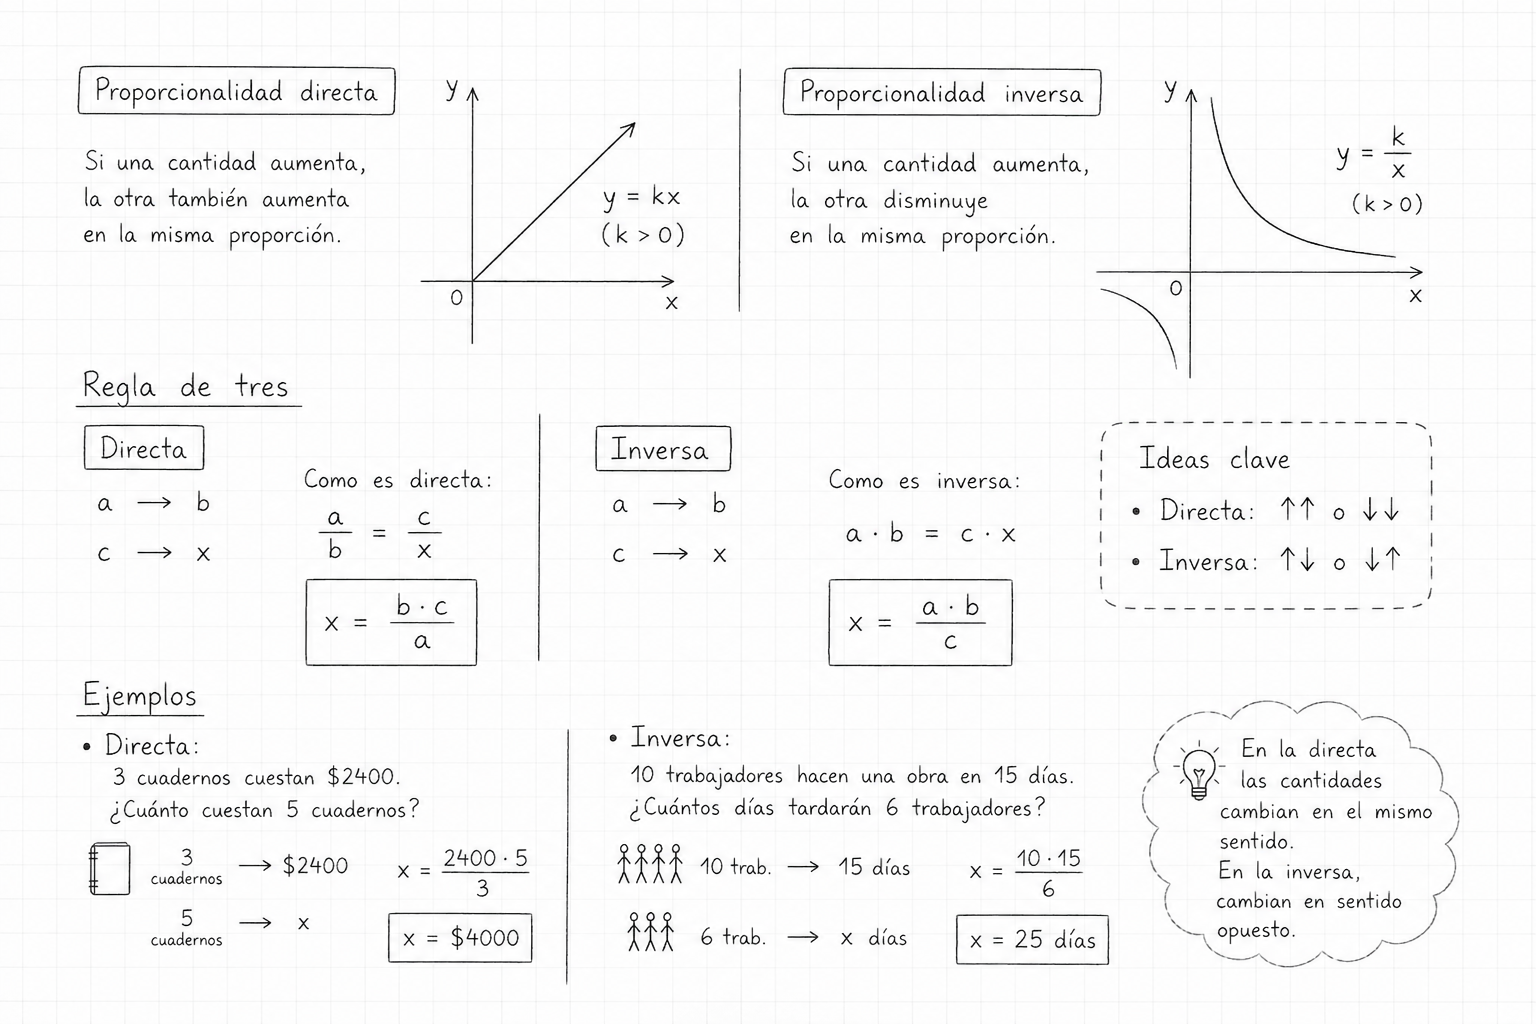 Proporcionalidad directa
Si una cantidad aumenta,
la otra también aumenta
en la misma proporción.
y
y = kx
(k > 0)
0
x
Proporcionalidad inversa
Si una cantidad aumenta,
la otra disminuye
en la misma proporción.
y
y = k/x
(k > 0)
0
x
Regla de tres
Directa
a → b
c → x
Como es directa:
a/b = c/x
x = b · c / a
Inversa
a → b
c → x
Como es inversa:
a · b = c · x
x = a · b / c
Ideas clave
• Directa: ↑↑ o ↓↓
• Inversa: ↑↓ o ↓↑
Ejemplos
• Directa:
3 cuadernos cuestan $2400.
¿Cuánto cuestan 5 cuadernos?
3 cuadernos → $2400
5 cuadernos → x
x = 2400 · 5 / 3
x = $4000
• Inversa:
10 trabajadores hacen una obra en 15 días.
¿Cuántos días tardarán 6 trabajadores?
10 trab. → 15 días
6 trab. → x días
x = 10 · 15 / 6
x = 25 días
En la directa
las cantidades
cambian en el mismo
sentido.
En la inversa,
cambian en sentido
opuesto.